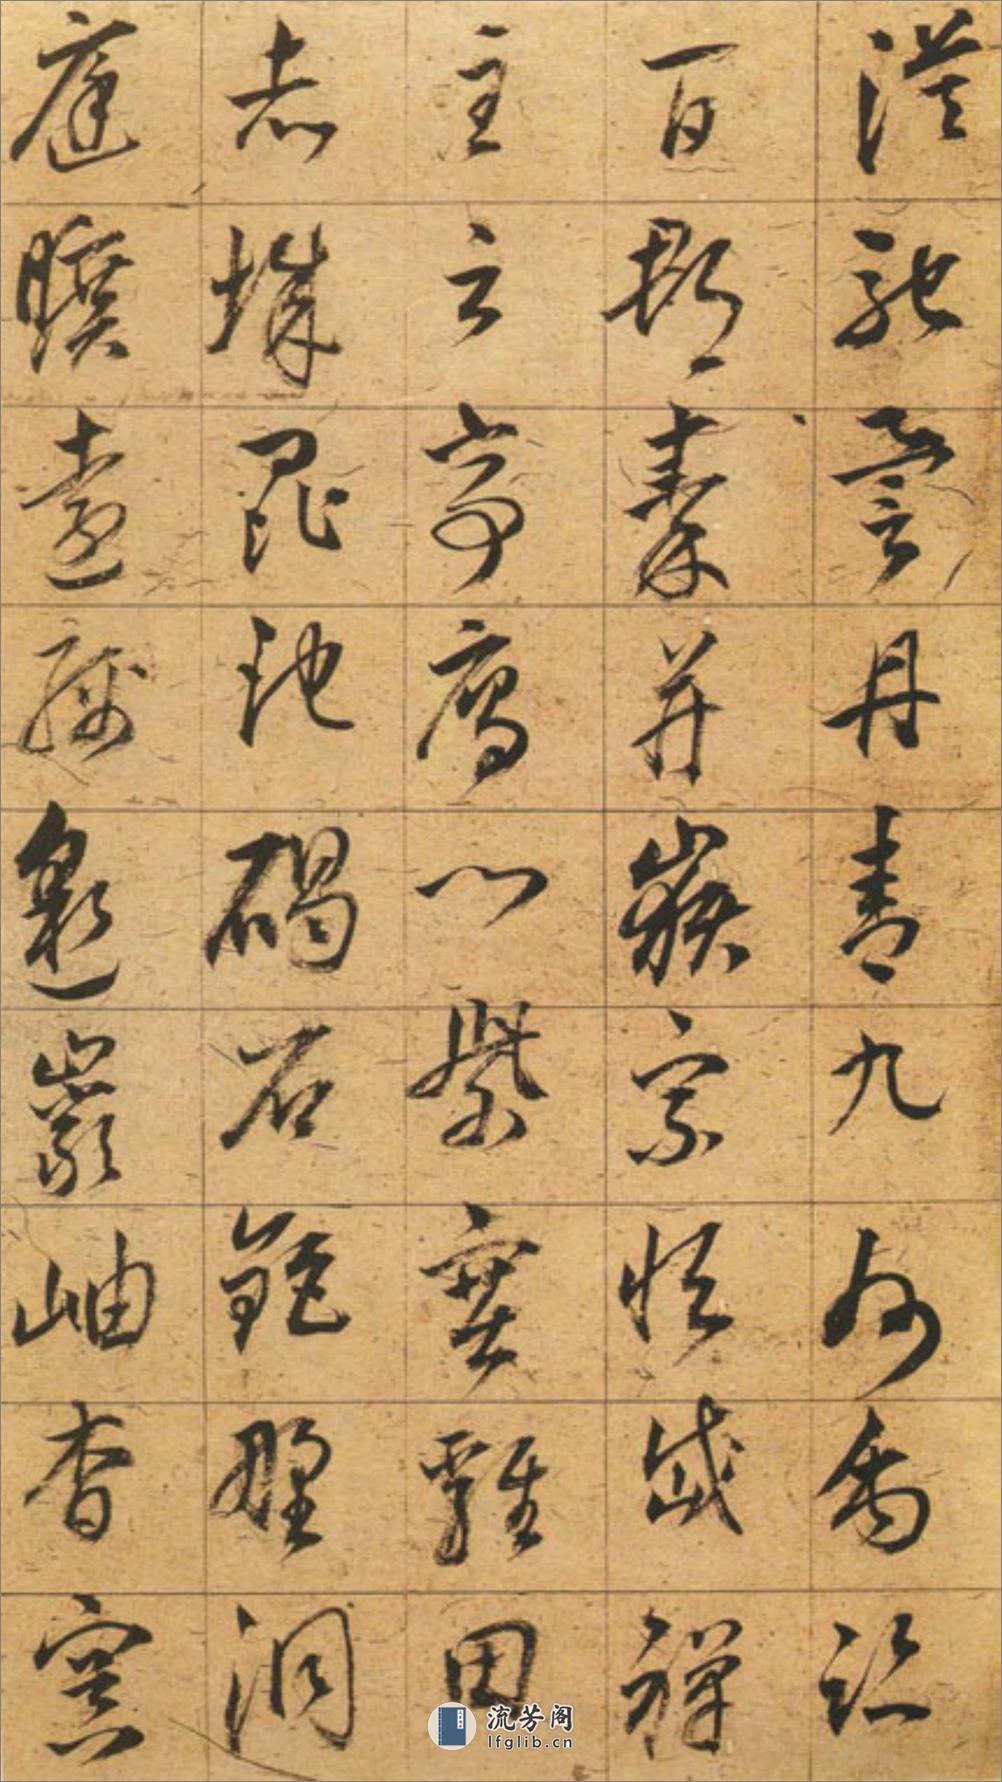 漠馳譽丹青九州禹跡
百郡秦并嶽宗恒岱禪
主云亭鴈門紫塞雞田
赤城昆池碣石鉅野洞
庭曠遠綿邈巖岫杳冥
流芳阁
lfglib.cn